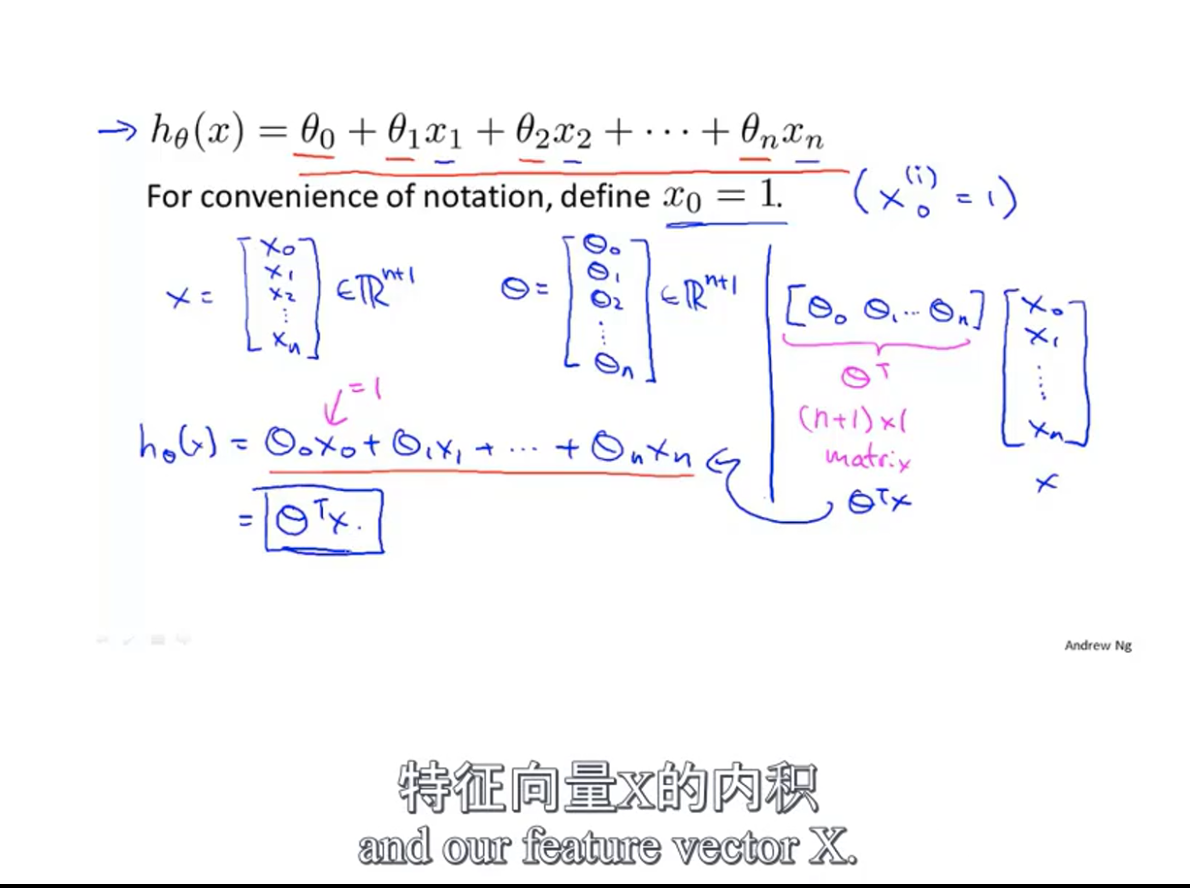 → hθ(x) = θ0 + θ1x1 + θ2x2 + ⋯ + θnxn
For convenience of notation, define x0 = 1. (x0^(i) = 1)
x = [x0 x1 x2 ⋮ xn] ∈ ℝ^(n+1)
θ = [θ0 θ1 θ2 ⋮ θn] ∈ ℝ^(n+1)
[θ0 θ1 ⋯ θn] [x0 x1 ⋮ xn]
θ^T
(n+1) × 1
matrix
x
θ^T x
= 1
hθ(x) = θ0x0 + θ1x1 + ⋯ + θnxn
= θ^T x.
Andrew Ng
特征向量X的内积
and our feature vector X.